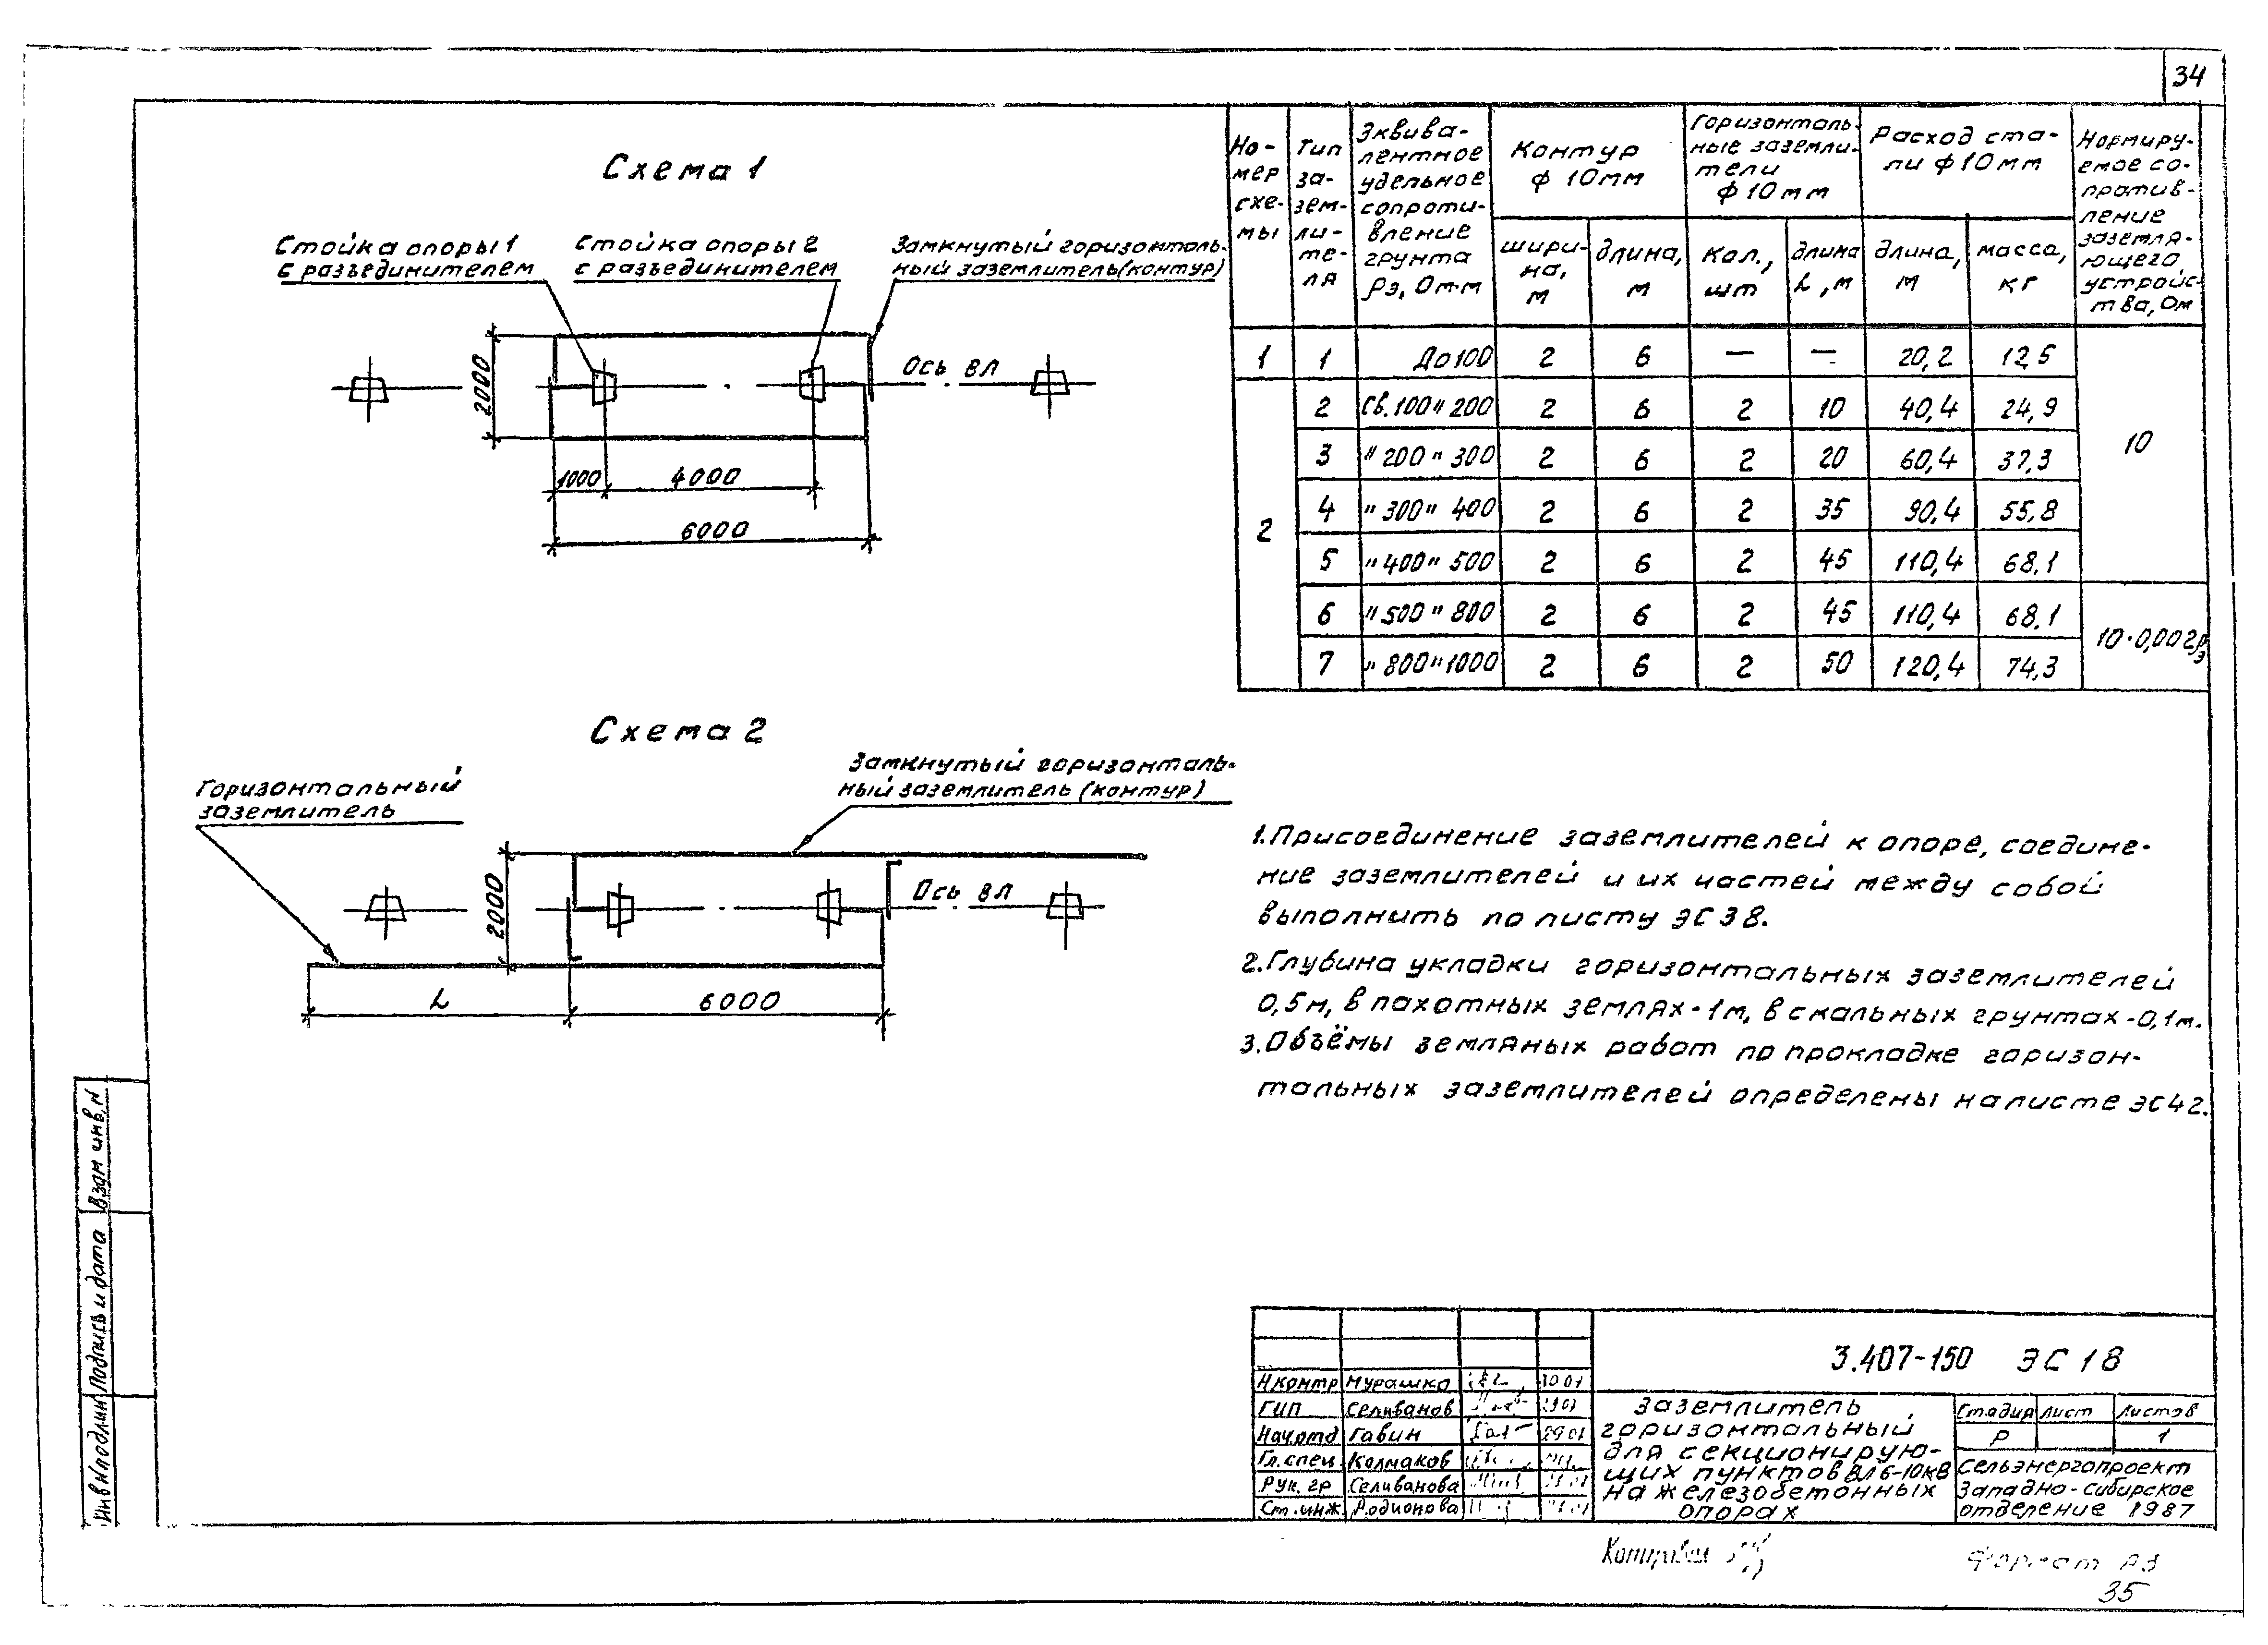 34
Схема 1
Стойка опоры 1
с разъединителем
Стойка опоры 2
с разъединителем
Замкнутый горизонталь-
ный заземлитель (контур)
Ось ВЛ
2000
1000
4000
6000
Схема 2
Горизонтальный
заземлитель
Замкнутый горизонталь-
ный заземлитель (контур)
Ось ВЛ
2000
L
6000
Но-
мер
схе-
мы
Тип
за-
зем-
ли-
те-
ля
Эквива-
лентное
удельное
сопроти-
вление
грунта
ρэ, Ом·м
Контур
ф 10мм
шири-
на,
м
длина,
м
Горизонталь-
ные заземли-
тели
ф 10мм
кол.,
шт
длина
L, м
Расход ста-
ли ф 10мм
длина,
м
масса,
кг
Нормиру-
емое со-
против-
ление
заземля-
ющего
устройс-
тва, Ом
1 1 До 100 2 6 — — 20,2 12,5
2 2 Св. 100 " 200 2 6 2 10 40,4 24,9
3 " 200 " 300 2 6 2 20 60,4 37,3
4 " 300 " 400 2 6 2 35 90,4 55,8
5 " 400 " 500 2 6 2 45 110,4 68,1
10
6 " 500 " 800 2 6 2 45 110,4 68,1
7 " 800 " 1000 2 6 2 50 120,4 74,3
10·0,002ρэ
1. Присоединение заземлителей к опоре, соедине-
ние заземлителей и их частей между собой
выполнить по листу ЭС38.
2. Глубина укладки горизонтальных заземлителей
0,5м, в пахотных землях - 1м, в скальных грунтах - 0,1м.
3. Объёмы земляных работ по прокладке горизон-
тальных заземлителей определены на листе ЭС42.
Взам инв. N
Подпись и дата
Инв N подлин
3.407-150 ЭС18
Н.контр Мурашко
ГИП Селиванов
Нач.отд Гавин 29.01
Гл.спец Колмаков
Рук. гр Селиванова
Ст.инж. Родионова
Заземлитель
горизонтальный
для секционирую-
щих пунктов ВЛ 6-10кВ
на железобетонных
опорах
Стадия Лист Листов
Р 1
Сельэнергопроект
Западно-Сибирское
отделение 1987
Копировал
Формат А3
35